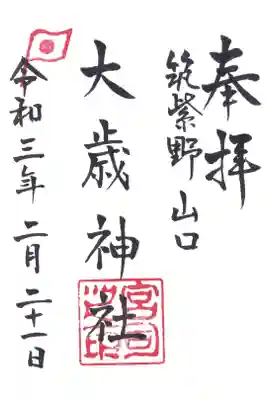 奉拝
筑紫野 山口
大歳神社
令和三年 二月 二十一日